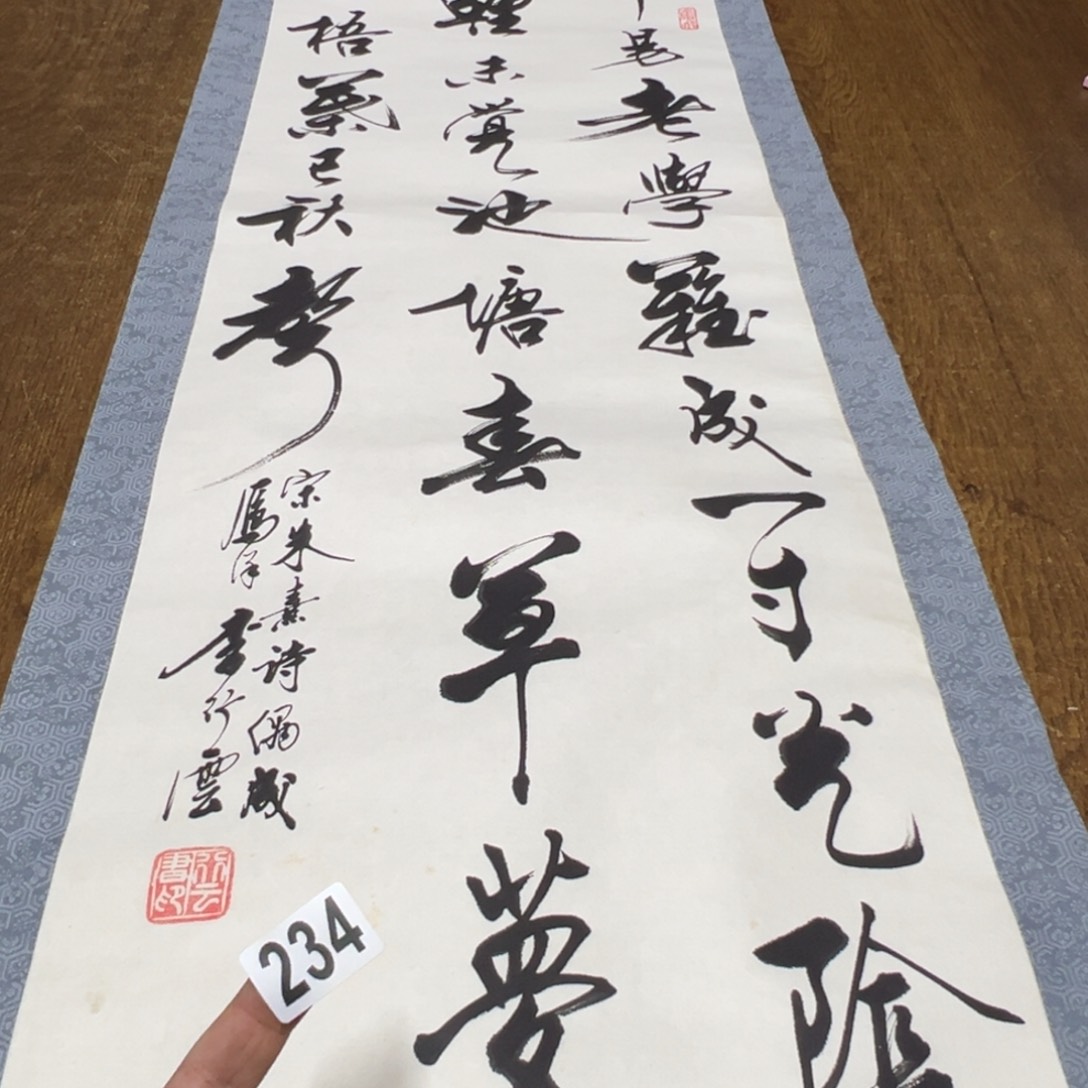 易老學難成一寸光陰
輕未覺池塘春草夢
梧葉已秋聲
宋朱熹詩偶成
李行雲
行云書印
234